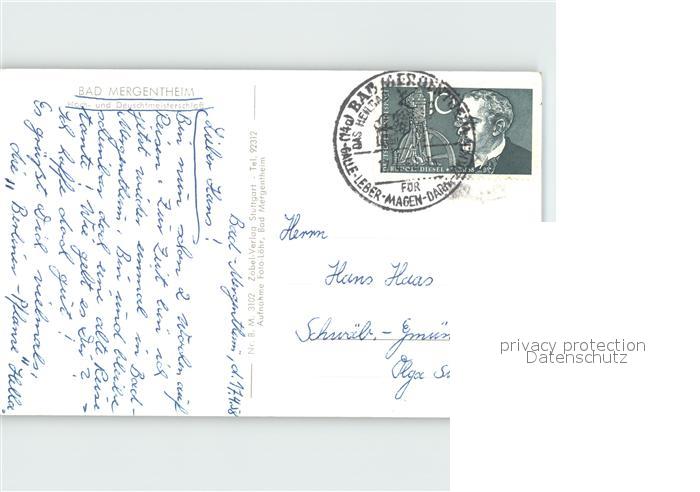 BAD MERGENTHEIM
Hoch- und Deutschmeisterschloß
Bad-Mergentheim, d. 17.4.58
Lieber Hans!
Bin nun schon 2 Wochen auf
Reisen. Zur Zeit bin ich
jetzt wieder einmal in Bad-
Mergentheim. Bin und bleibe
scheinbar doch eine alte Reise
tante! Wie geht es Dir?
Ich hoffe doch gut!
Es grüßt Dich vielmals,
die "Berliner-Pflanze"
Nr. B. M. 3102 Zobel-Verlag Stuttgart - Tel. 92312
Aufnahme Foto-Löhr, Bad Mergentheim
(14a) BAD MERGENTHEIM
DAS HEILBAD
FÜR
GALLE-LEBER-MAGEN-DARM
10
RUDOLF DIESEL
Herrn
Hans Haas
Schwäb.-Gmün
Olga
privacy protection
Datenschutz